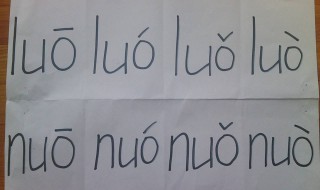 luō luó luǒ luò
nuō nuó nuǒ nuò